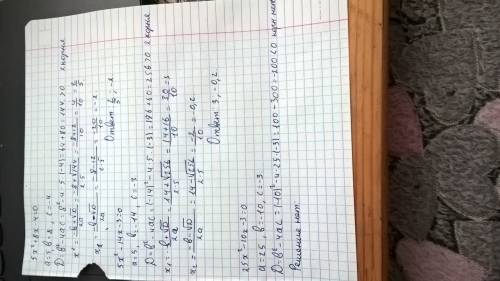 5x²+8x-4=0
a=5, b=8, c=-4
D=b²-4ac=8²-4·5·(-4)=64+80=144>0 2 корня
x₁=-b+√D/2a=-8+√144/2·5=-8+12/10=4/10=2/5
x₂=-b-√D/2a=-8-12/2·5=-20/10=-2
Ответ 2/5; -2
5x²-14x-3=0
a=5, b=-14, c=-3
D=b²-4ac=(-14)²-4·5·(-3)=196+60=256>0 2 корня
x₁=-b+√D/2a=14+√256/2·5=14+16/10=30/10=3
x₂=-b-√D/2a=14-√256/2·5=-2/10=-0,2
Ответ 3, -0,2
25x²-10x-3=0
a=25, b=-10, c=-3
D=b²-4ac=(-10)²-4·25·(-3)=100-300=-200<0 корн нет
Решение нет